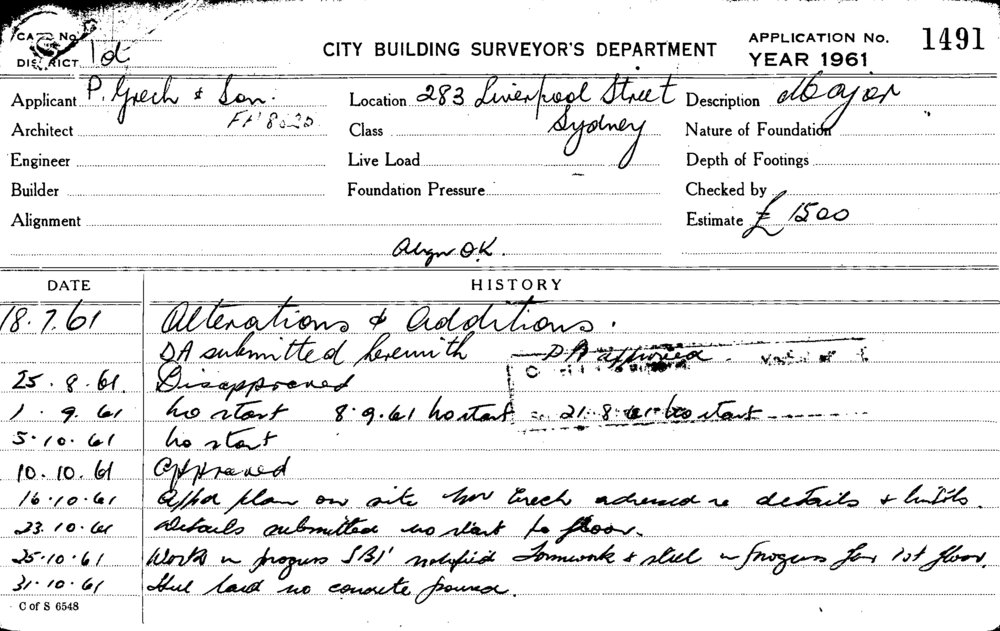 CARD No.
DISTRICT 1d
CITY BUILDING SURVEYOR'S DEPARTMENT
APPLICATION No. 1491
YEAR 1961
Applicant P. Grech & Son. Location 283 Liverpool Street Description Major
FA 8020 Sydney
Architect Class Nature of Foundation
Engineer Live Load Depth of Footings
Builder Foundation Pressure Checked by
Alignment Estimate £ 1500
Align O.K.
DATE HISTORY
18.7.61 Alterations & Additions.
DA submitted herewith DA approved
25.8.61 Disapproved
1.9.61 no start 8.9.61 no start 21.8.61 no start
5.10.61 no start
10.10.61 Approved
16.10.61 Appd plan on site Mr Grech advised re details & lintels.
23.10.61 Details submitted no start to floor.
25.10.61 Works in progress SBI notified formwork & steel in progress for 1st floor.
31.10.61 Steel laid no concrete poured.
C of S 6548